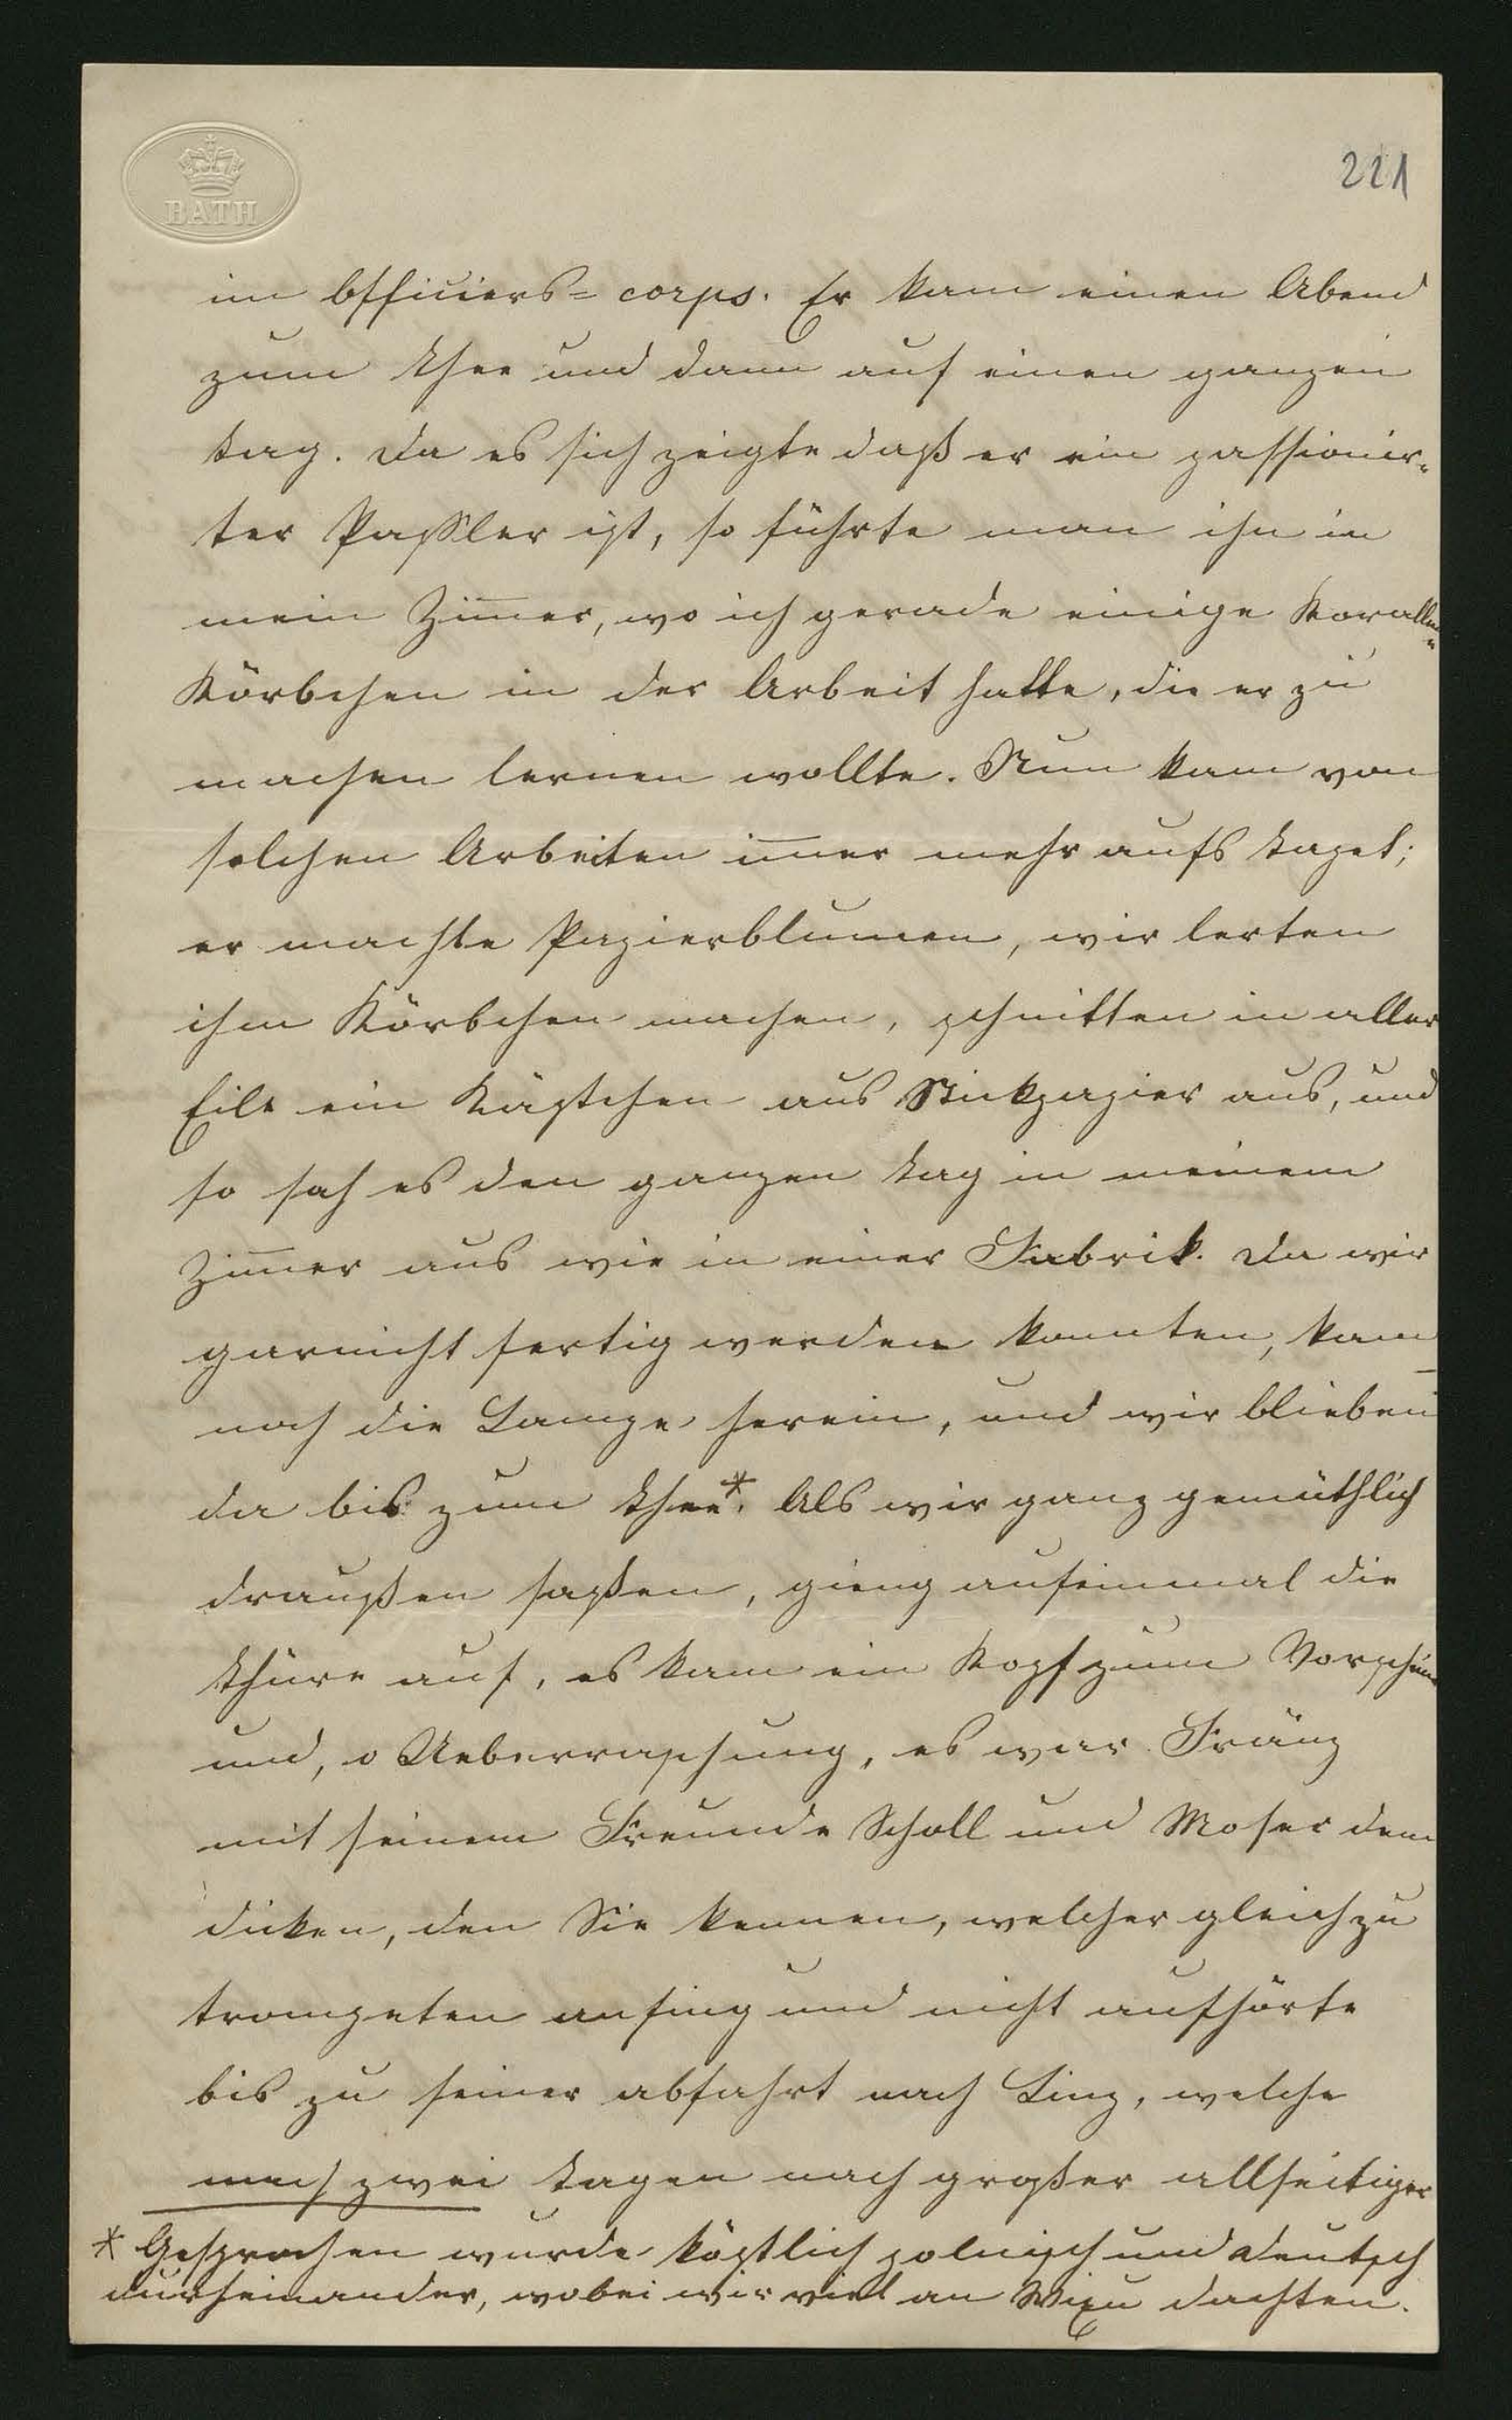 BATH
221
im Officiers= corps. Er kam einen Abend
zum Thee und dann auf einen ganzen
Tag. Da es sich zeigte daß er ein passionir-
ter Passler ist, so führte man ihn in
mein Zim̅er, wo ich gerade einige Korallen-
Körbchen in der Arbeit hatte, die er zu
machen lernen wollte. Nun kam von
solchen Arbeiten im̅er mehr aufs Tapet;
er machte Papierblumen, wir lerten
ihm Körbchen machen, schnitten in aller
Eile ein Kästchen aus Stickpapier aus, und
so sah es den ganzen Tag in meinem
Zim̅er aus wie in einer Fabrik. Da wir
garnicht fertig werden konnten, kam
noch die Lampe herein, und wir blieben
da bis zum Thee*. Als wir ganz gemüthlich
draußen saßen, gieng aufeinmal die
Thüre auf, es kam ein Kopf zum Vorschein
und, o Ueberraschung, es war Fränz
mit seinem Freunde Scholl und Moser dem
dicken, den Sie kennen, welcher gleich zu
trompeten anfing und nicht aufhörte
bis zu seiner abfahrt nach Linz, welche
nach zwei Tagen nach großer allseitiger
* Gesprochen wurde köstlich polnisch und deutsch
durheinander, wobei wir viel an dachten.